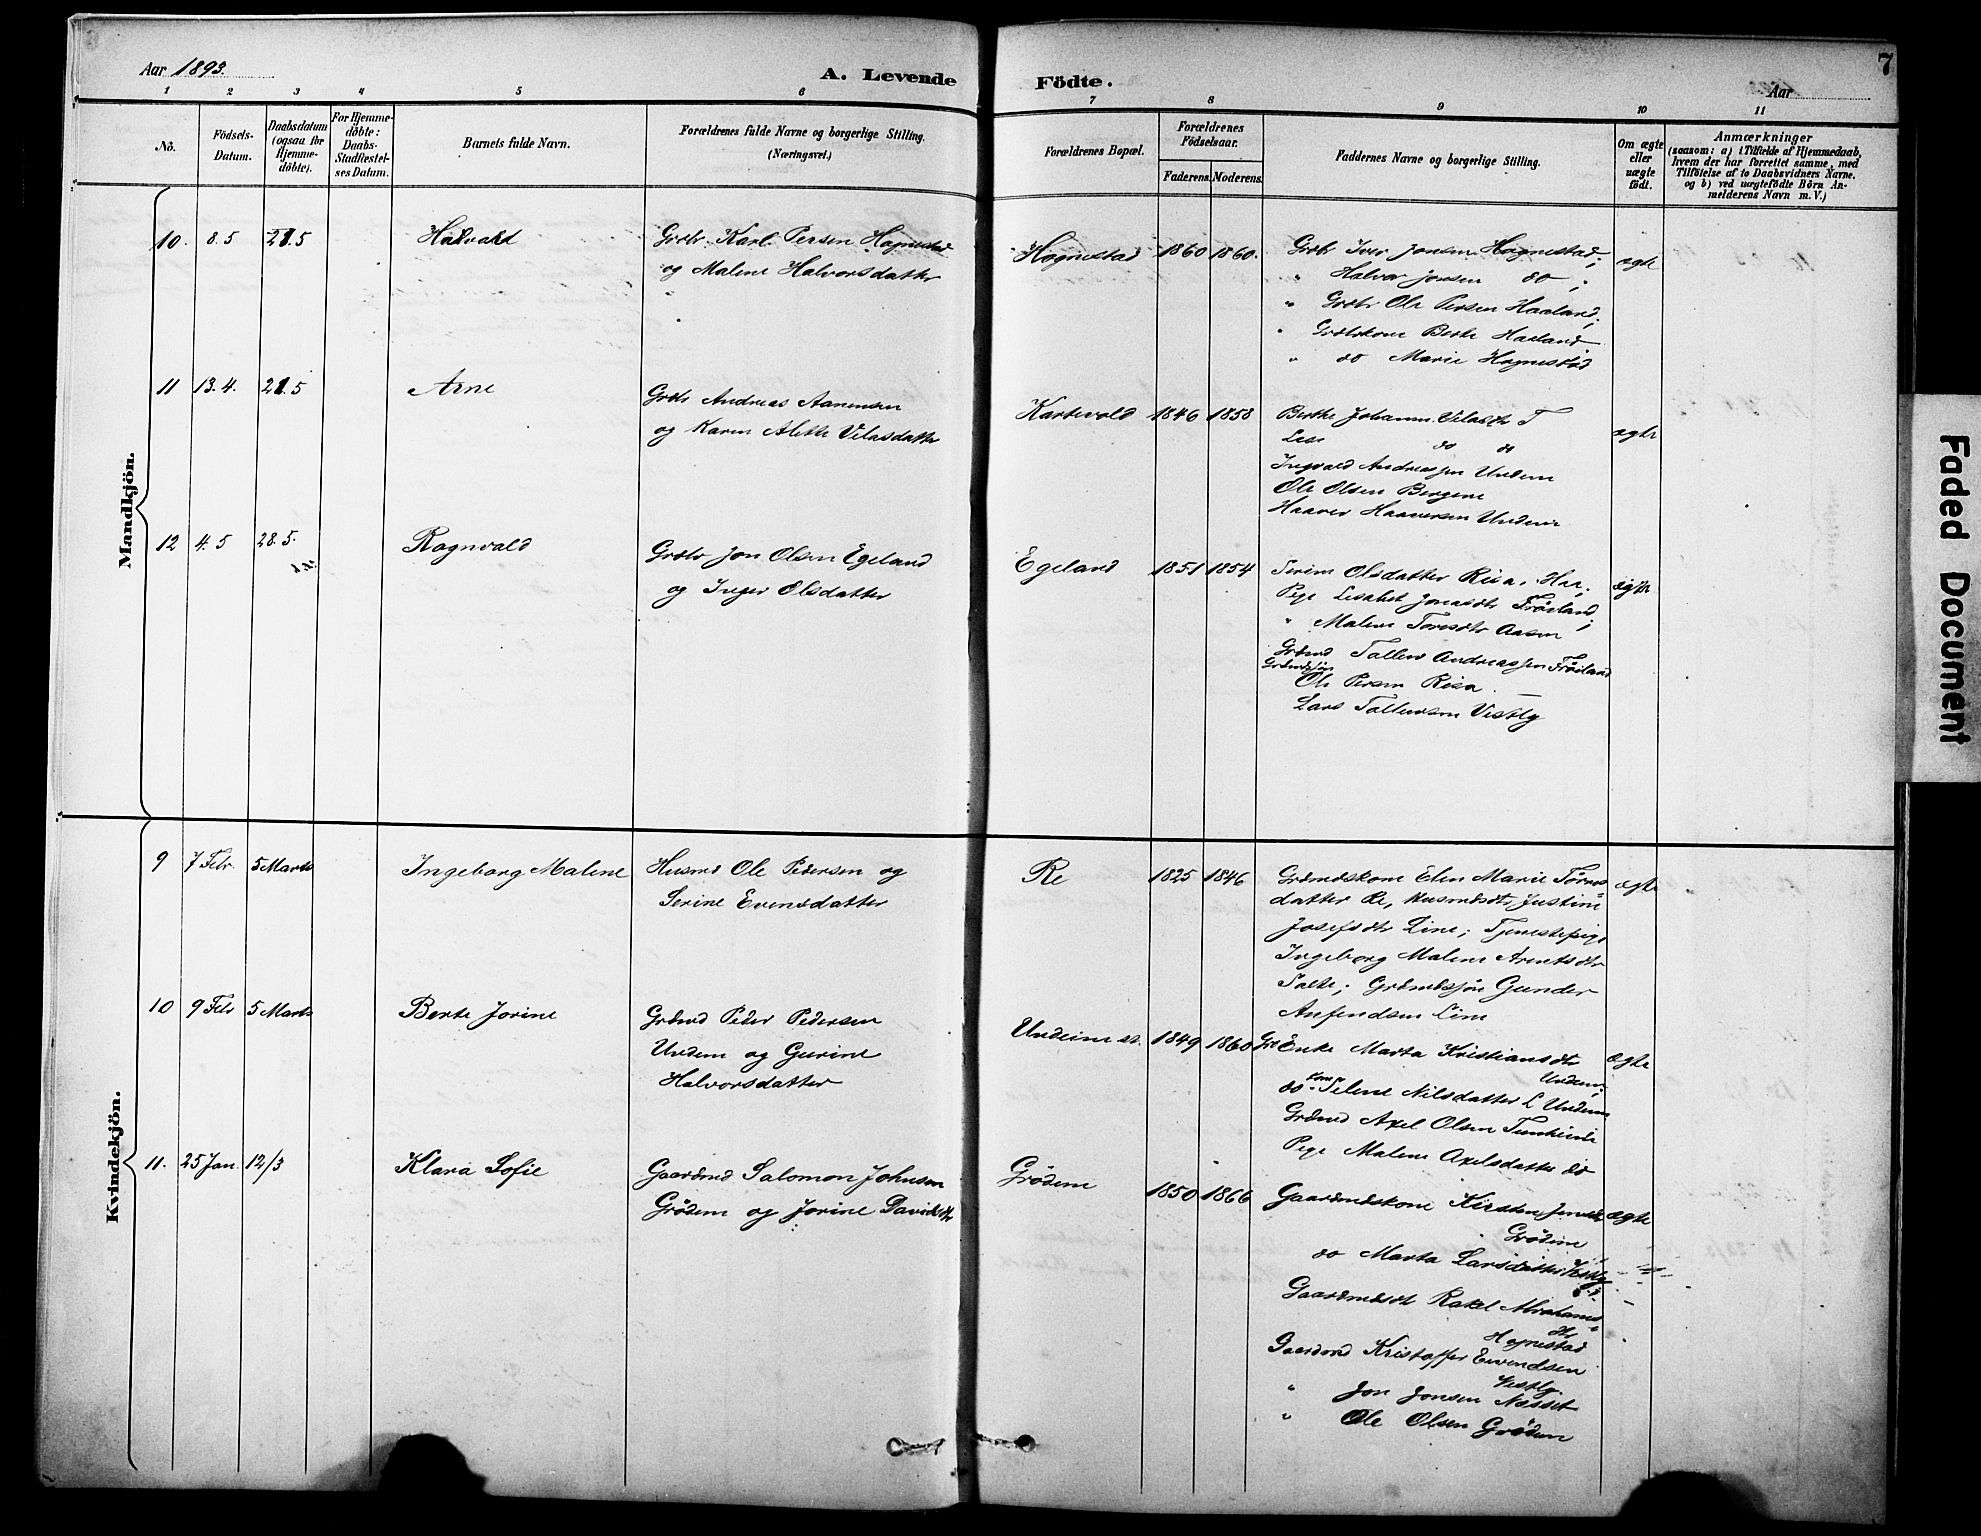 Aar 1893.
A. Levende Födte.
Aar
7
1 2 3 4 5 6 7 8 9 10 11
Nö.
Födsels-
Datum.
Daabsdatum
(ogsaa for
Hjemme-
döbte).
For Hjemme-
döbte:
Daabs-
Stadfæstel-
ses Datum.
Barnets fulde Navn.
Forældrenes fulde Navne og borgerlige Stilling.
(Næringsvei.)
Forældrenes Bopæl.
Forældrenes
Födselsaar.
Faderens. Moderens.
Faddernes Navne og borgerlige Stilling.
Om ægte
eller
uægte
födt.
Anmærkninger
(saasom: a) i Tilfælde af Hjemmedaab,
hvem der har forrettet samme, med
Tilföielse af to Daabsvidners Navne.
og b) ved uægtefödte Börn An-
melderens Navn m. V.)
Mandkjön.
10. 8.5 21.5 Halvard
Grdbr. Karl Persen Hognestad
og Malene Halvorsdatter
Hognestad 1860 1860.
Grdbr Iver Jonsen Hognestad;
" Halvor Jonsen do ;
" Grdbr Ole Persen Haaland;
" Grdbrkone Berte Haaland
" do Marie Hognestad
ægte
11 13.4. 21.5 Arne
Grdbr Andreas Aanensen
og Karen Alette Velasdatter
Kartevold 1846 1858
Berthe Johanne Velasdtr T
do do
Ingvald Andreassen Undem
Ole Olsen Bergene
Haaver Haaversen Undem
ægte
12 4.5 28.5. Ragnvald
Grdbr Jon Olsen Egeland
og Inger Olsdatter
Egeland 1851 1854
Serine Olsdatter Risa, Haa;
Pige Lisabet Jonasdtr Fröiland;
" Malene Toresdtr Aasen
Grdmd Tollew Andreassen Fröiland
Grdmdssön
Ole Persen Risa
Lars Tollewsen Vestly
ægte
Kvindekjön.
9 7 Febr. 5 Marts Ingeborg Malene
Husmd Ole Pedersen og
Serine Evensdatter
Re 1825 1846
Grdmdskone Elen Marie Törres
datter Re, Husmdsdtr Justine
Josefsdtr Line; Tjenestepige
Ingeborg Malene Arentsdtr
Salte; Grdmdssön Gunder
Anfendsen Line
ægte
10 9 Febr 5 Marts Berte Jorine
Grdmd Peder Pedersen
Undem og Gurine
Halvorsdatter
Undeim 1849 1860
Grd Enke Marta Kristiansdtr
Undem;
do Kone Selene Nilsdatter L Undem
Grdmd Axel Olsen Tunheim
Pige Malene Axelsdatter do
ægte
11. 25 Jan. 12/3 Klara Sofie
Gaardmd Salomon Johnsen
Grödem og Jorine Davidsdtr
Grödem 1850 1866
Gaardmdskone Kirsten Jonsdtr
Grödem
do Marta Larsdatter Vestly
Gaardmdsdt Rakel Abrahams
dtr
Hognestad
Gaardmd Kristoffer Evendsen
Vestly.
" Jon Jonsen Næsset
" Ole Olsen Grödem
ægte
Faded Document